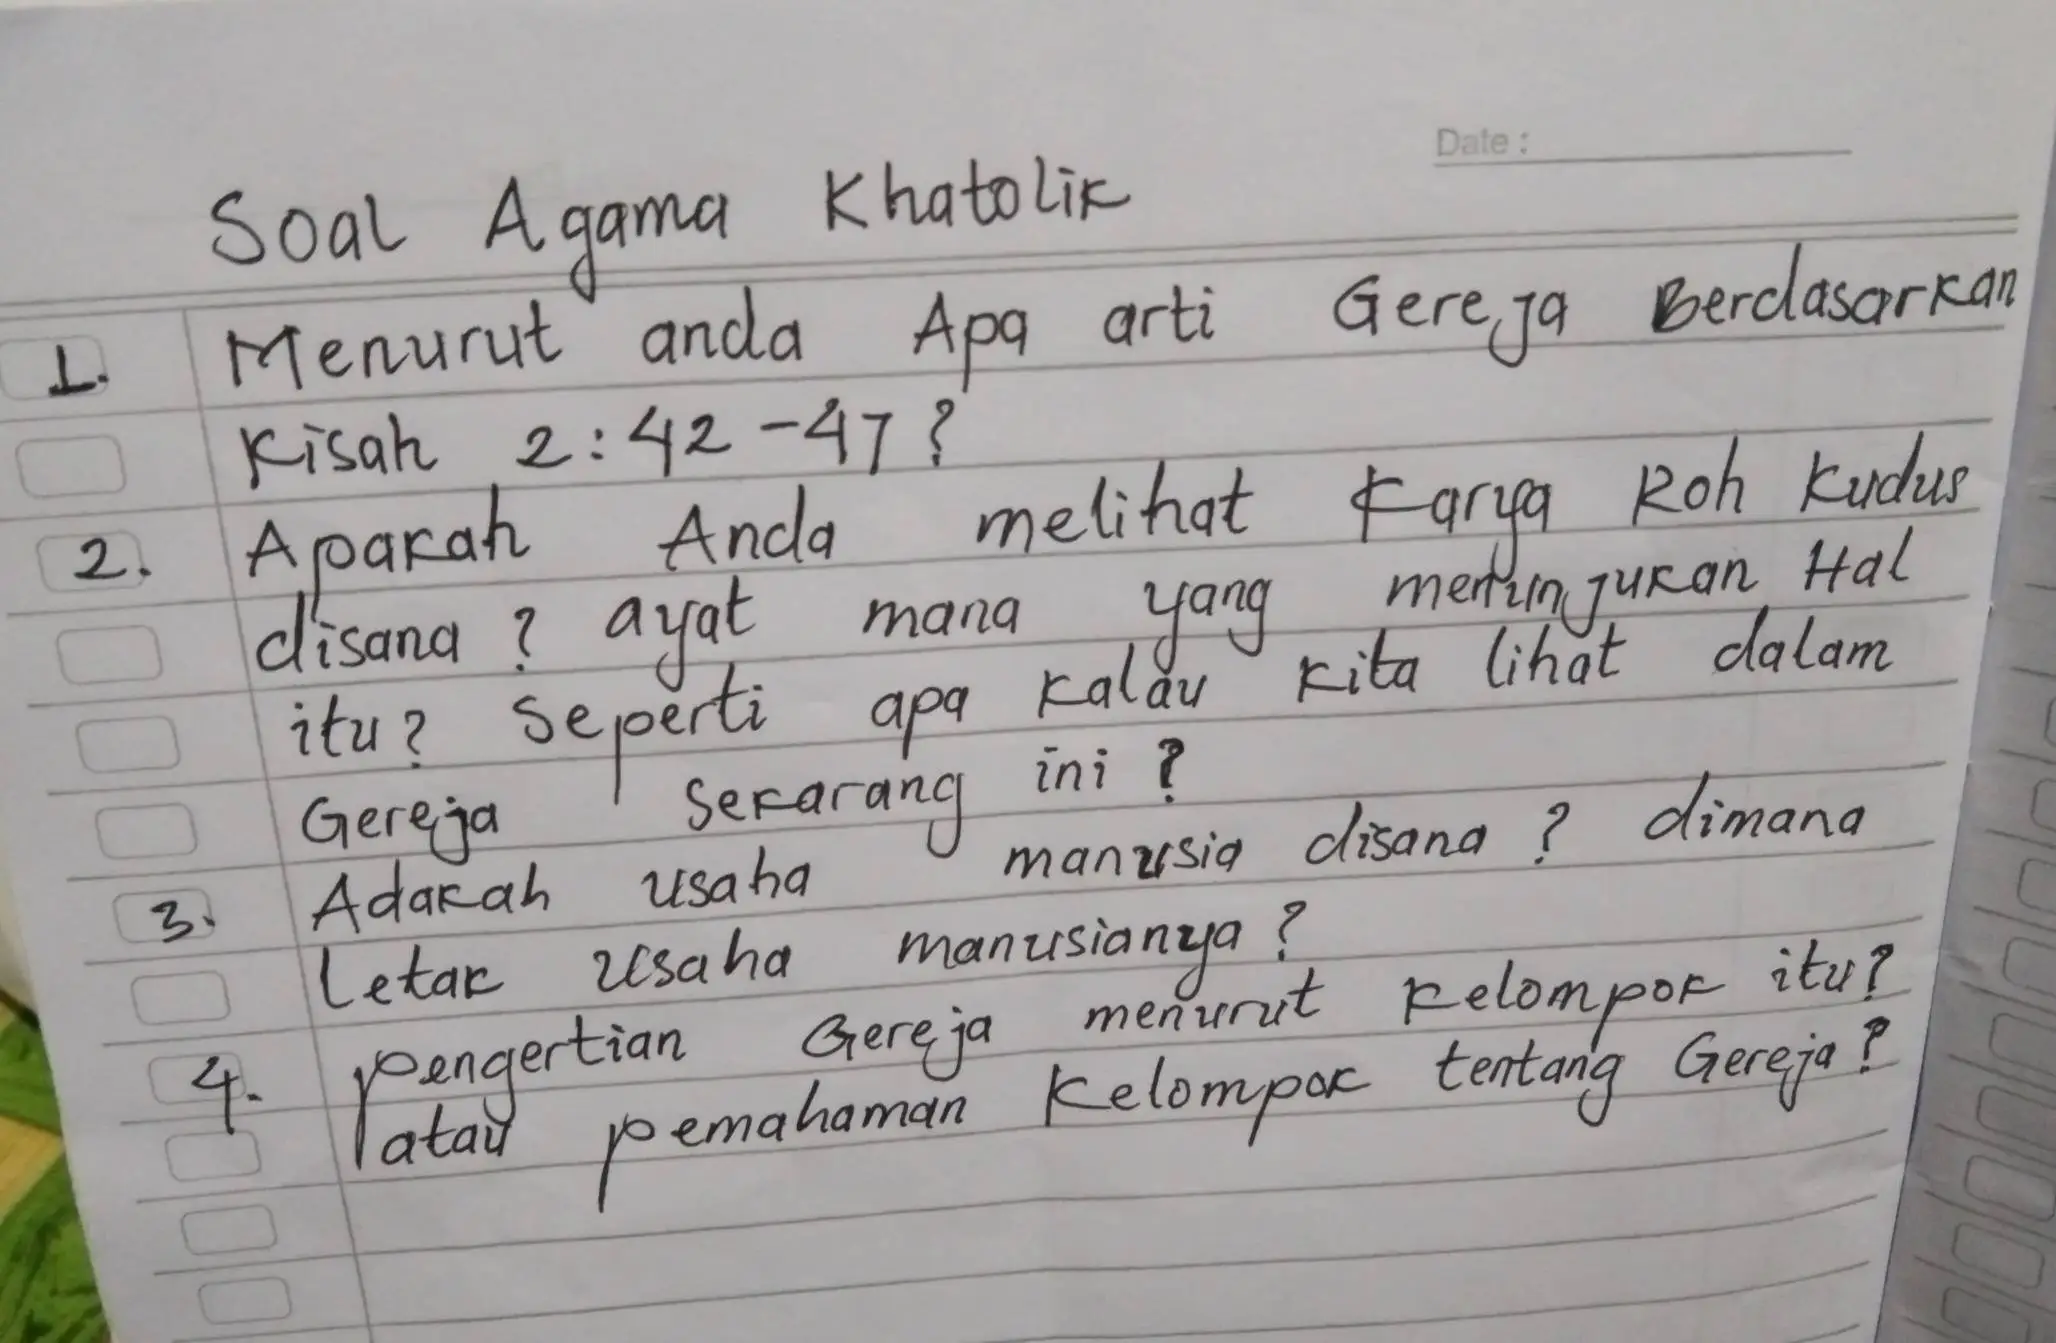 Date :
Soal Agama Khatolik
1. Menurut anda Apa arti Gereja Berdasarkan
Kisah 2:42-47?
2. Apakah Anda melihat Karya Roh Kudus
disana? ayat mana yang menunjukan Hal
itu? Seperti apa kalau kita lihat dalam
Gereja Sekarang ini?
3. Adakah usaha manusia disana? dimana
letak usaha manusianya?
4. pengertian Gereja menurut kelompok itu?
atau pemahaman kelompok tentang Gereja?